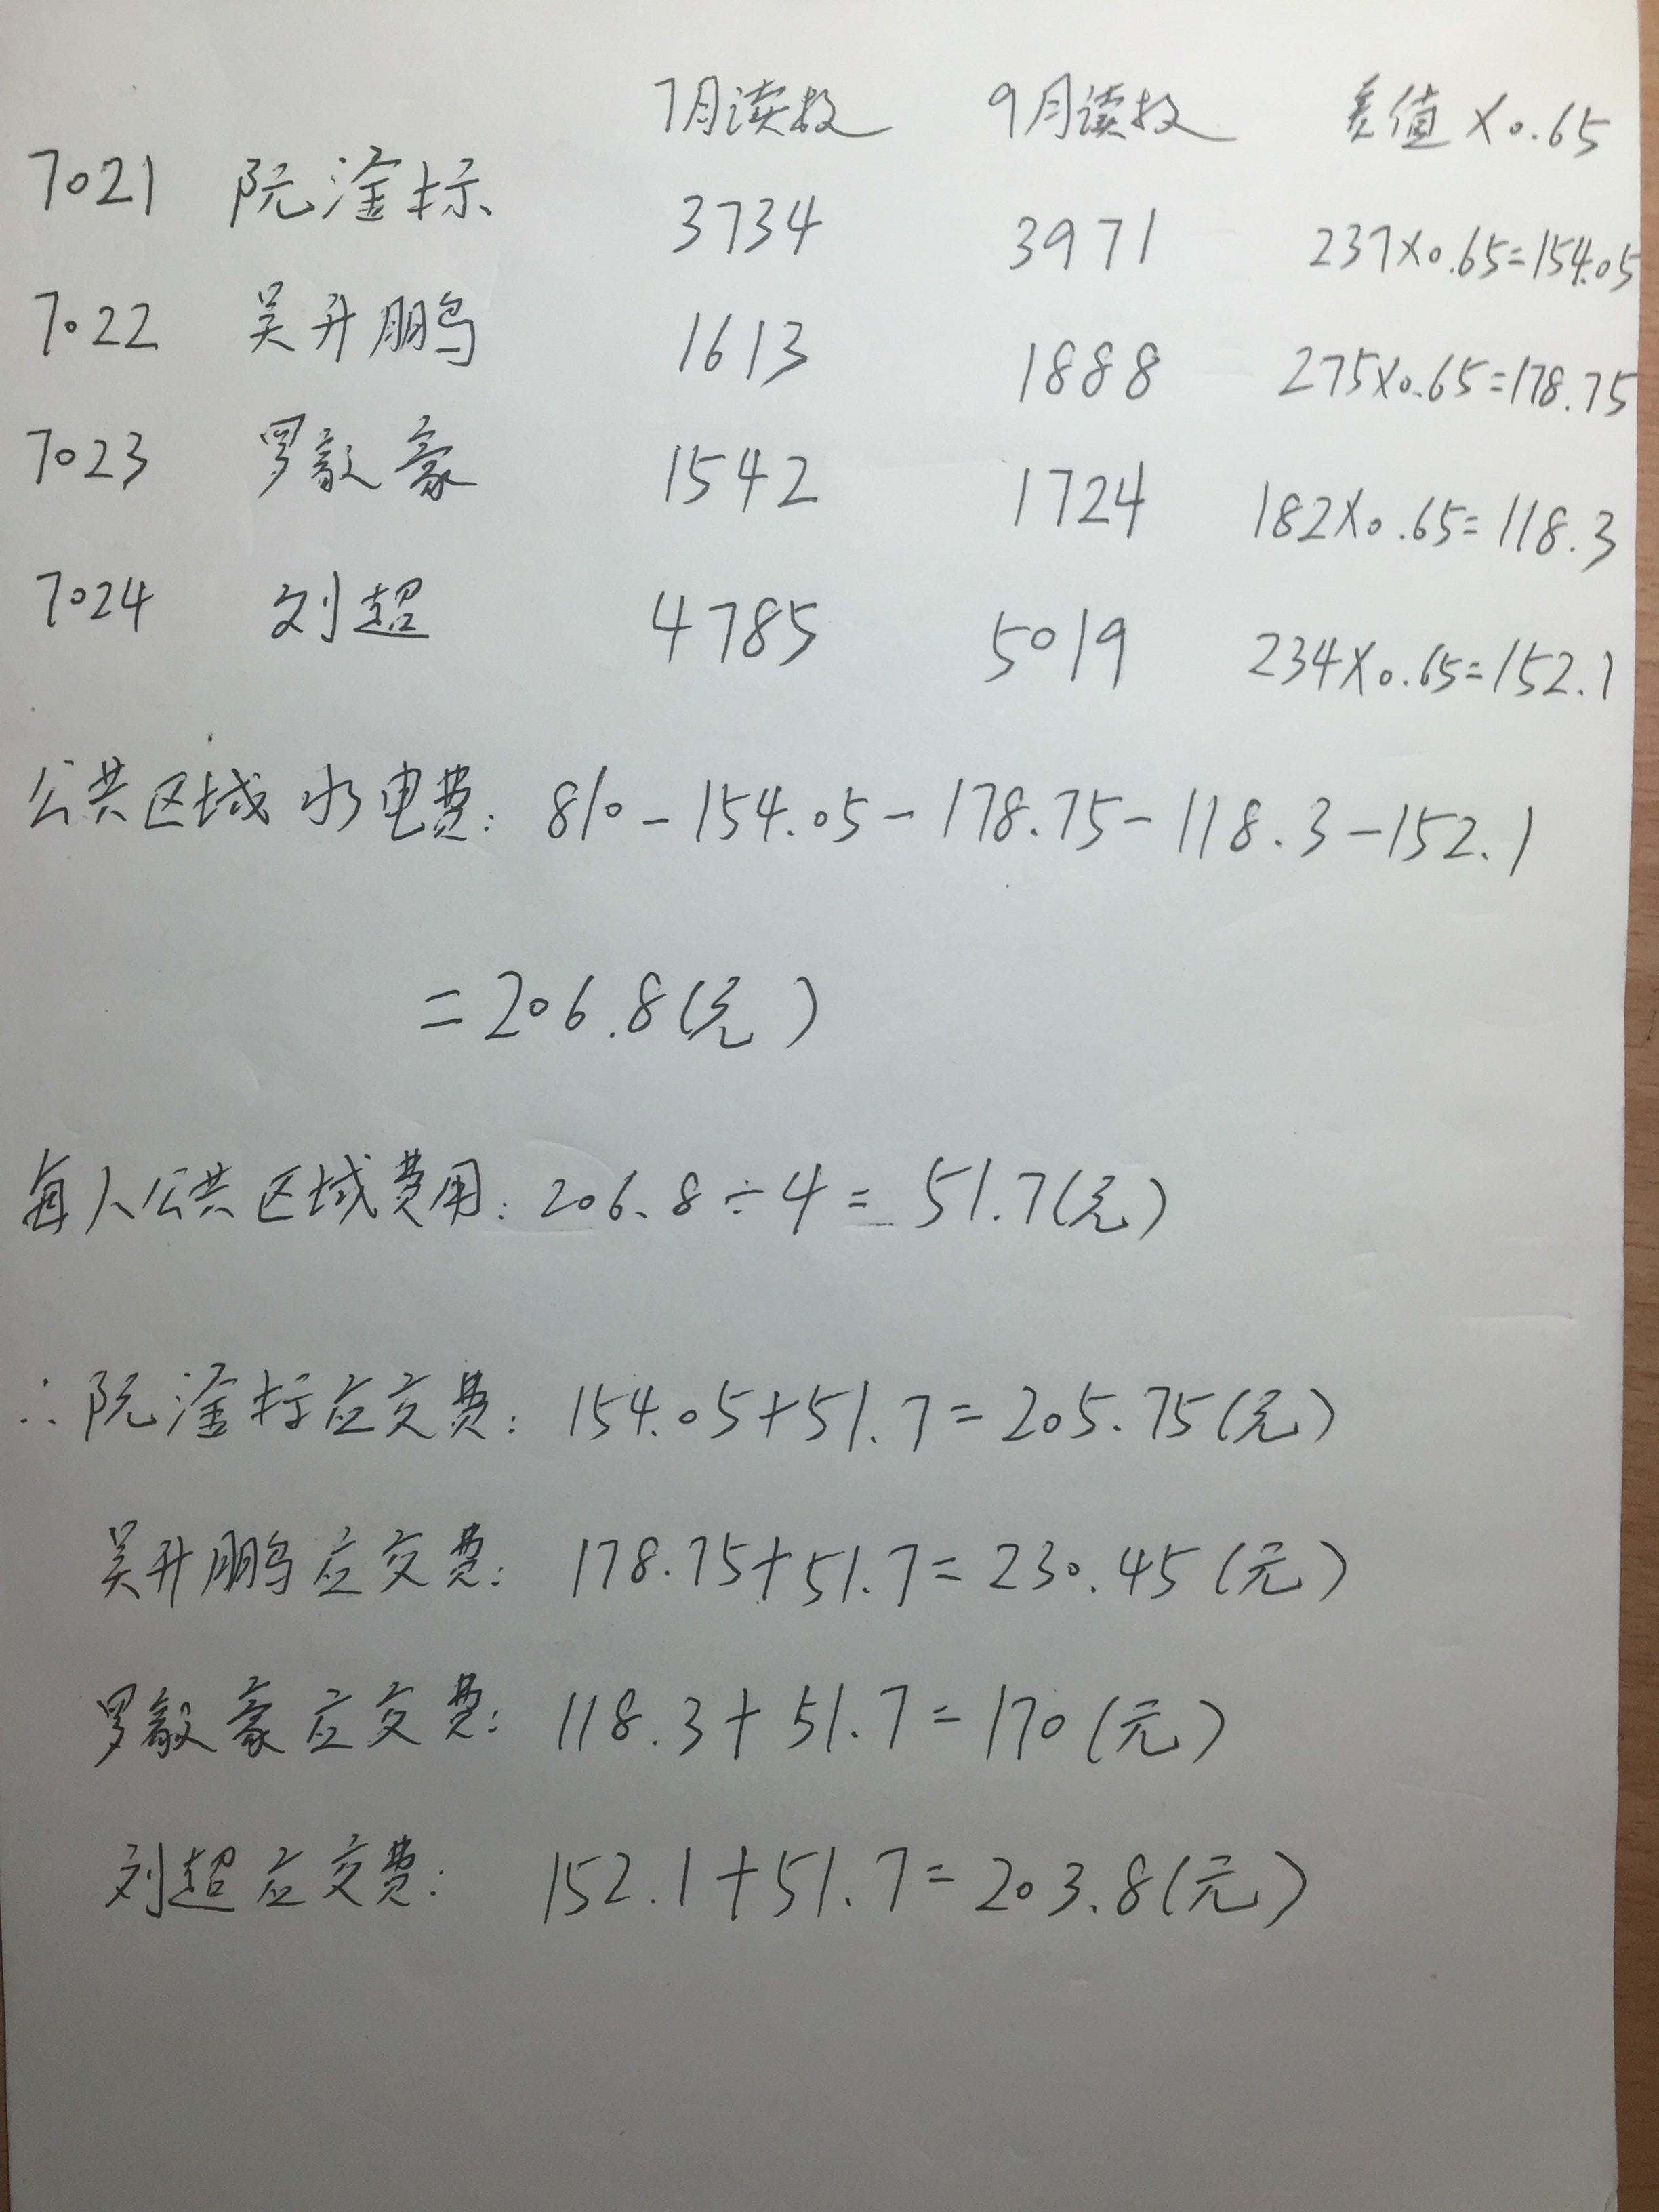 7月读数 9月读数 差值×0.65
7021 阮淦标 3734 3971 237×0.65=154.05
7022 吴升鹏 1613 1888 275×0.65=178.75
7023 罗毅豪 1542 1724 182×0.65=118.3
7024 刘超 4785 5019 234×0.65=152.1
公共区域水电费: 810-154.05-178.75-118.3-152.1
=206.8(元)
每人公共区域费用: 206.8÷4=51.7(元)
∴阮淦标应交费: 154.05+51.7=205.75(元)
吴升鹏应交费: 178.75+51.7=230.45(元)
罗毅豪应交费: 118.3+51.7=170(元)
刘超应交费: 152.1+51.7=203.8(元)